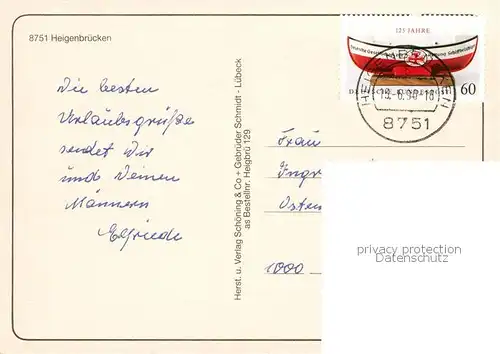 8751 Heigenbrücken
Die besten
Urlaubsgrüße
sendet Dir
und Deinen
Männern
Elfriede
Herst. u. Verlag Schöning & Co + Gebrüder Schmidt - Lübeck
as Bestellnr. Heigbrü 129
125 JAHRE
Deutsche Gesellschaft Rettung Schiffbrüchiger
DEUTSCHE BUNDESPOST 60
HEIGENBRÜCKEN
-6.90-18
8751
Frau
Ingr
Osten
1000
privacy protection
Datenschutz